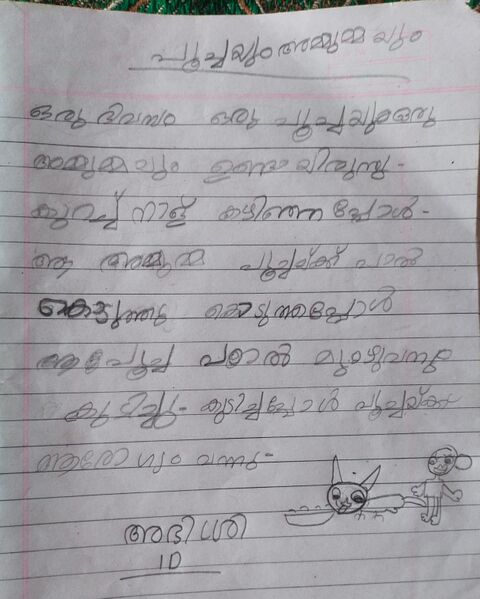 പൂച്ചയും അമ്മുമ്മയും
ഒരു ദിവസം ഒരു പൂച്ചയും ഒരു
അമ്മുമ്മയും ഉണ്ടായിരുന്നു.
കുറച്ച് നാള് കഴിഞ്ഞപ്പോൾ.
ആ അമ്മുമ്മ പൂച്ചയ്ക്ക് പാൽ
കൊടുത്തു കൊടുത്തപ്പോൾ
ആ പൂച്ച പാൽ മുഴുവനും
കുടിച്ചു. കുടിച്ചപ്പോൾ പൂച്ചയ്ക്ക്
ആരോഗ്യം വന്നു.
1D